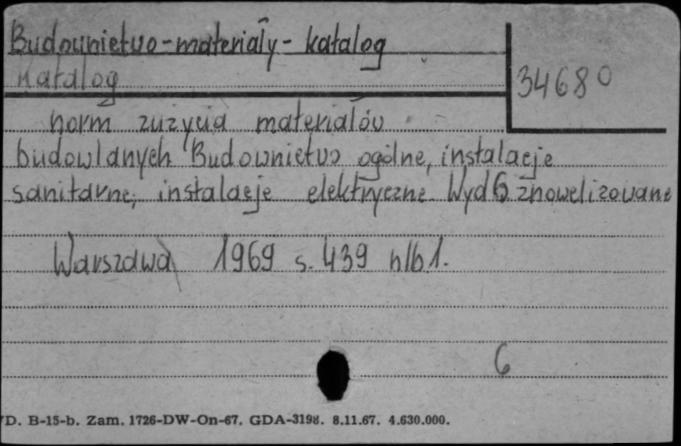 Budownictwo-materiały- katalog
Katalog
34680
norm zużycia materiałów
budowlanych Budownictwo ogólne, instalacje
sanitarne, instalacje elektryczne. Wyd 6 znowelizowane
Warszawa 1969 s. 439 nlb 1.
6
D. B-15-b. Zam. 1726-DW-On-67. GDA-3198. 8.11.67. 4.630.000.